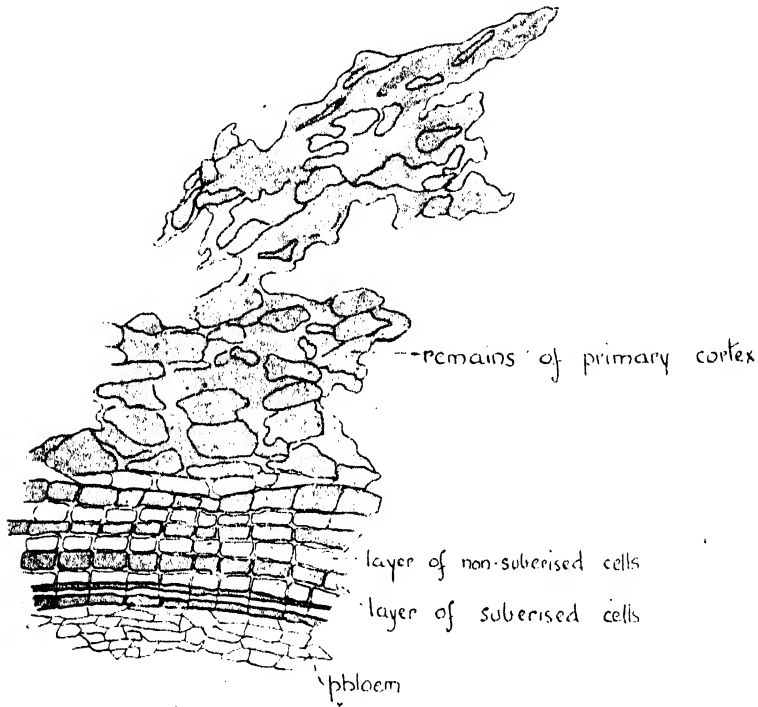 remains of primary cortex
layer of non-suberised cells
layer of suberised cells
phloem